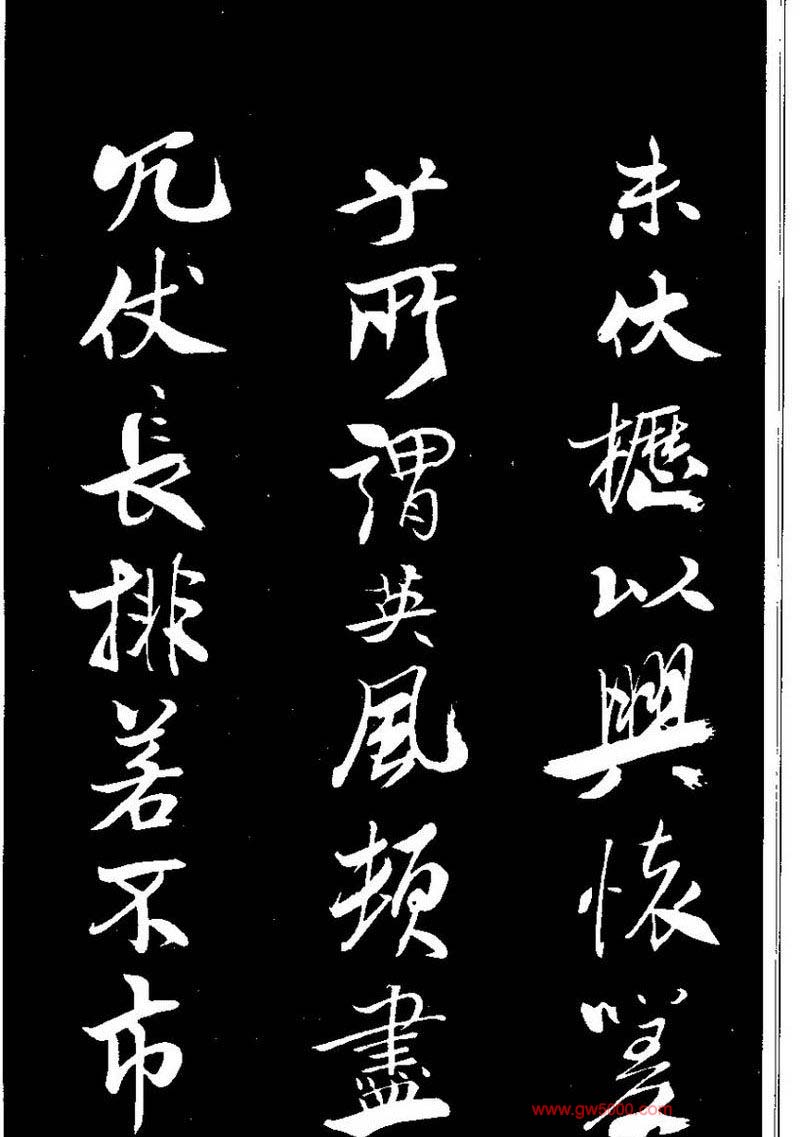 未伏櫪以興懷嗟
乎所謂英風頓盡
冗仗長排若不市
www.gw5000.com